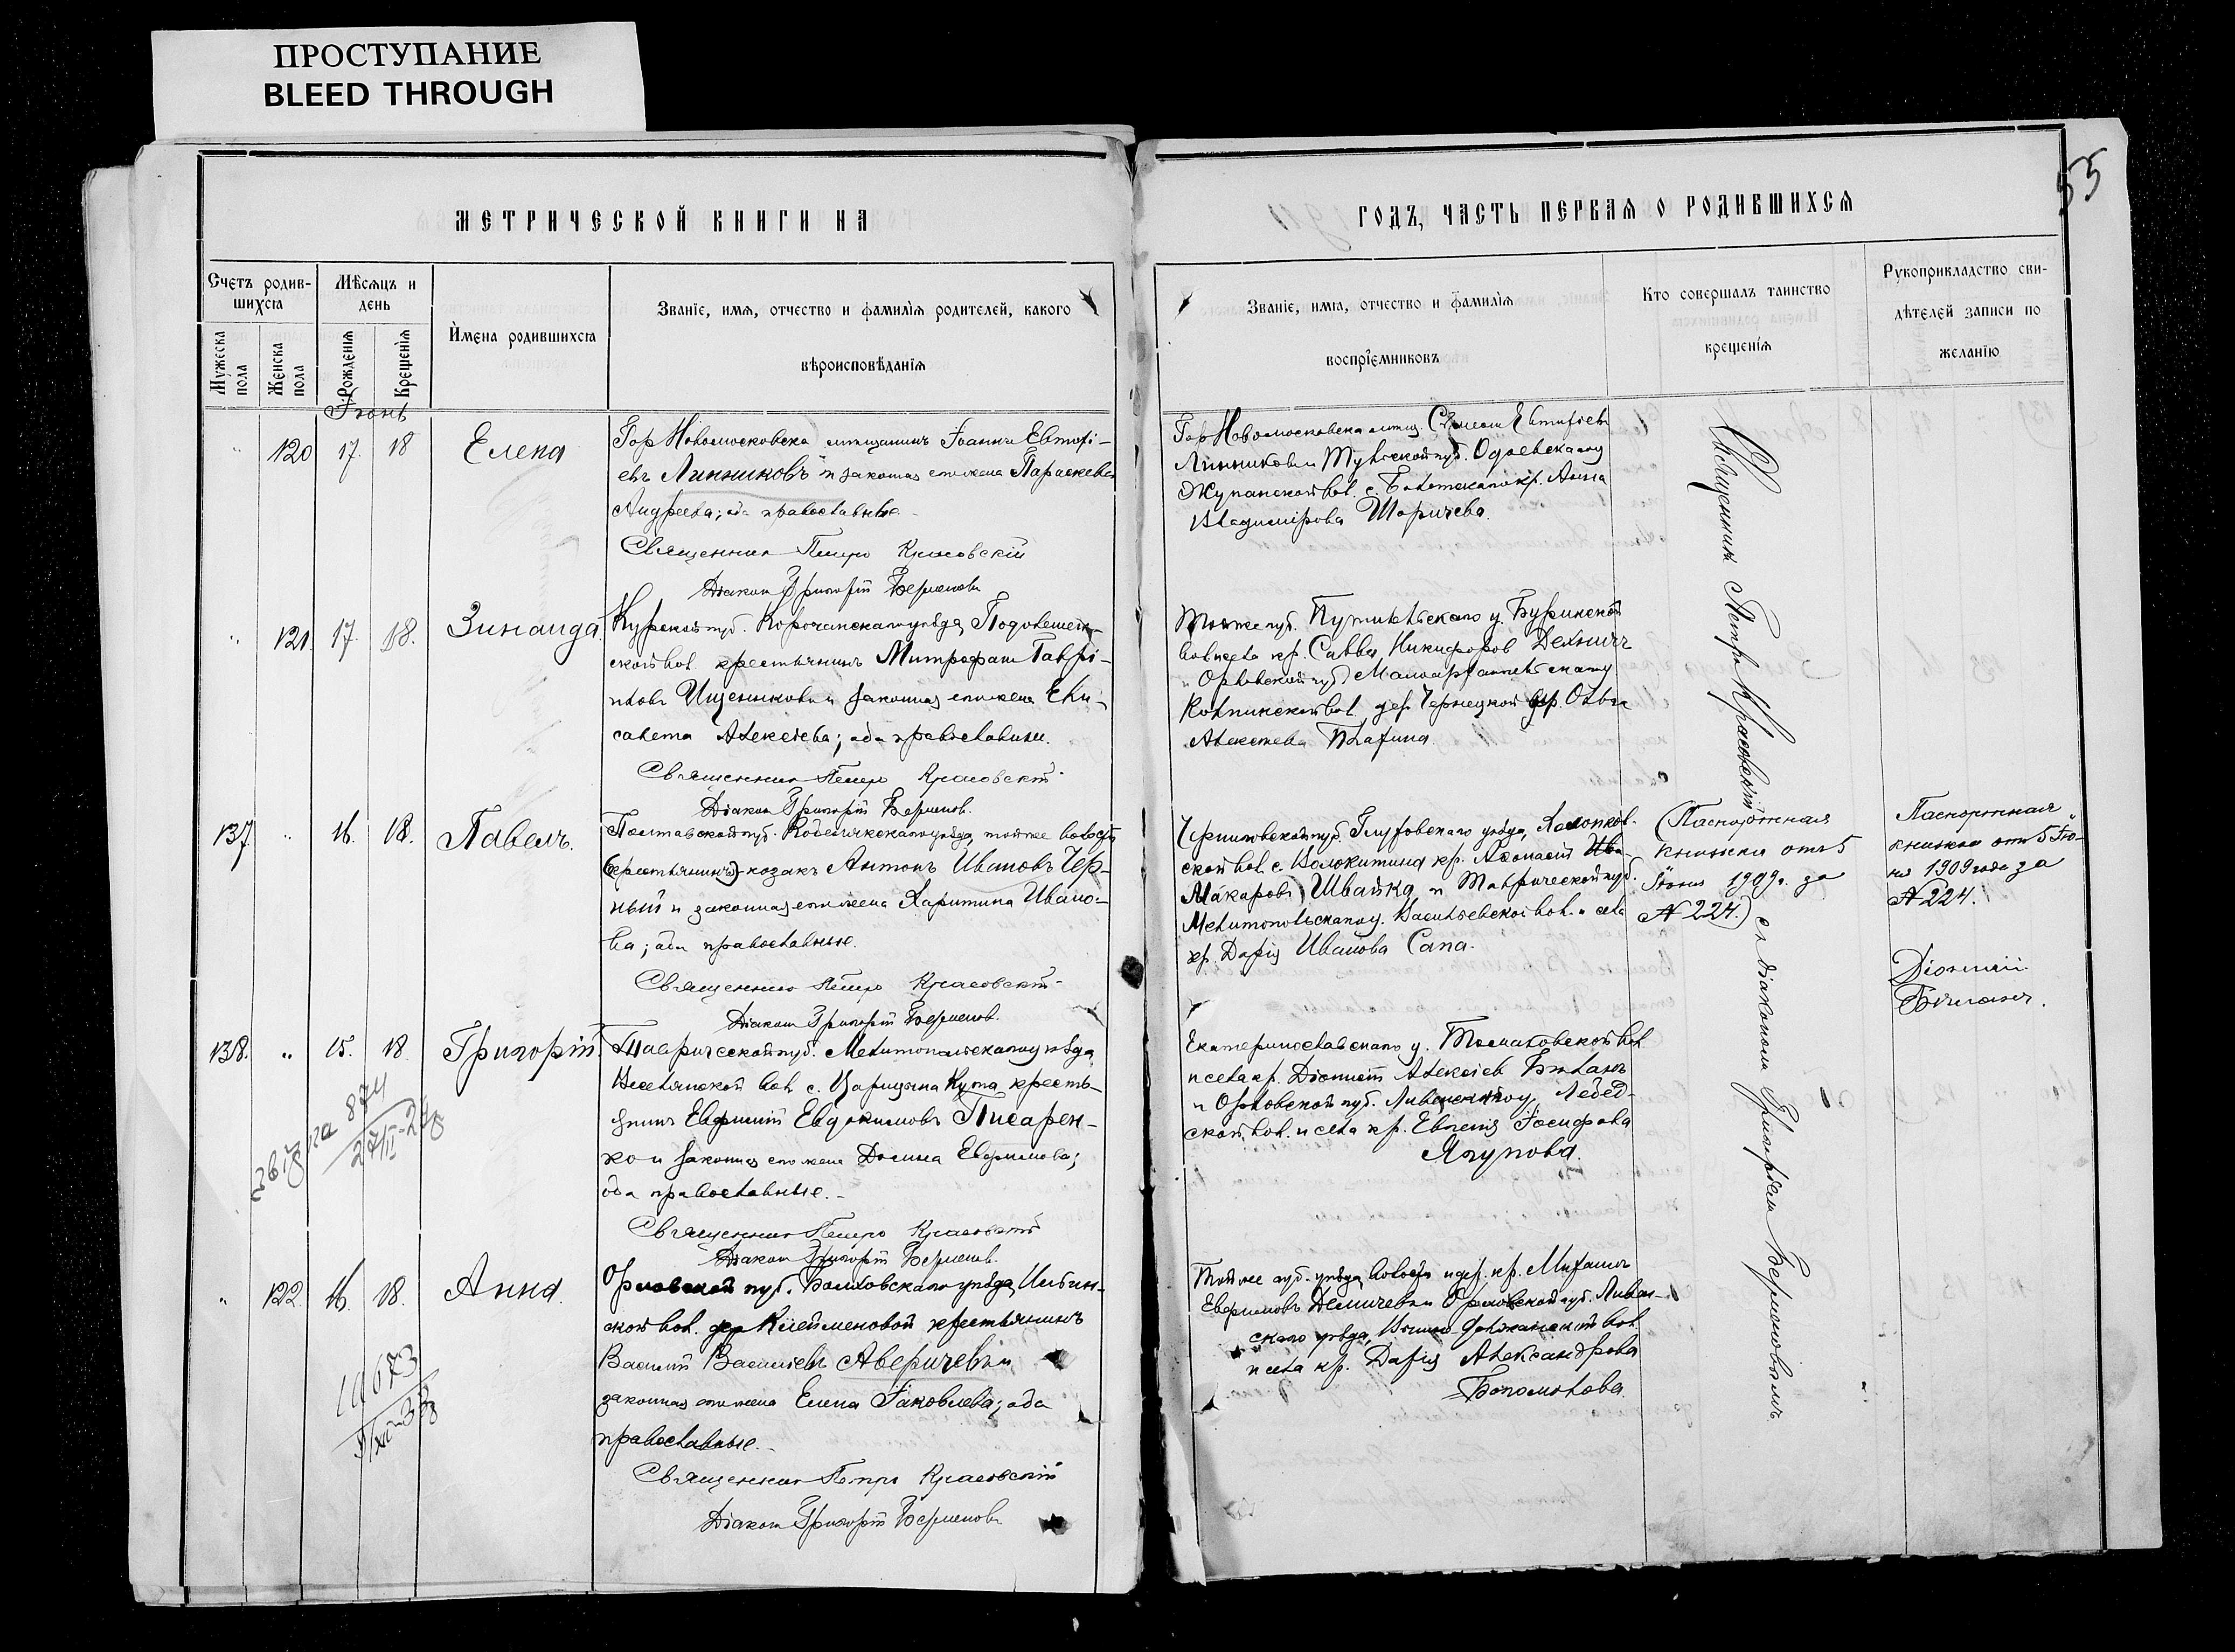 ПРОСТУПАНИЕ
BLEED THROUGH
55
МЕТРИЧЕСКОЙ КНИГИ НА
ГОДЪ, ЧАСТЬ ПЕРВАЯ О РОДИВШИХСЯ
Счетъ родив-
шихся
Мужеска
пола
Женска
пола
Мѣсяцъ и
день
Рожденія
Крещенія
Имена родившихся
Званіе, имя, отчество и фамилія родителей, какого
вѣроисповѣданія
Званіе, имя, отчество и фамилія
воспріемниковъ
Кто совершалъ таинство
крещенія
Рукоприкладство сви-
дѣтелей записи по
желанію
Іюнь
" 120 17. 18 Елена
Гор Новомосковска мѣщанинъ Іоаннъ Евтихі-
евъ Линниковъ и законная его жена Параскева
Андреева; оба православные
Священникъ Петръ Красовскій
Діаконъ Григорій
Гор Новомосковска мѣщ. Евтихіевъ
Линниковъ и губ.
вол. с. кр. Анна
Владимірова Шоричева.
" 121. 17. 18. Зинаида
Курской губ. Корочанскаго уѣзда,
ской вол. крестьянинъ Митрофанъ Гаврі-
иловъ Ищенниковъ и законная его жена Ели-
савета Алексѣева; оба православные.
Священникъ Петръ Красовскій
Діаконъ Григорій
Той же губ. Путивльскаго у. Буринской
вол. и села кр. Савва Никифоров
и Орловской губ. Малоархангельскаго у.
вол. дер. кр. Ольга
Алексѣева
137. " 16. 18. Павелъ.
Полтавской губ. Кобелякскаго уѣзда, той же волости
(крестьянинъ) козакъ Антонъ Ивановъ Чер-
ный и законная его жена Харитина Ивано-
ва; оба православные.
Священникъ Петръ Красовскій
Діаконъ Григорій
Черниговской губ. Глуховскаго уѣзда,
ской вол. с. Волокитина кр. Аѳанасій
Макаровъ) Швайка и Таврической губ.
Мелитопольскаго у. Васильевской вол. и села
кр. Дарія Иванова Сапа.
(Паспортная
книжка отъ 5
Іюня 1909г. за
№ 224.)
Паспортная
книжка отъ 5 Ію-
ня 1909 года за
№ 224.
138. " 15. 18. Григорій.
Таврической губ. Мелитопольскаго уѣзда,
вол. с. Царицына Кута кресть-
янинъ Евфимій Евдокимовъ Писарен-
ко и законная его жена Домна Евфимова;
оба православные.
Священникъ Петръ Красовскій
Діаконъ Григорій
874
Екатеринославскаго у. Томаковской вол.
и села кр. Діонисій Алексѣев
и Орловской губ. Ливенскаго у.
ской, вол. и села кр. Евгенія Іосифова
Ягупова.
" 122. 16. 18. Анна.
Орловской губ. Болховскаго уѣзда,
ской вол. дер Клейменовой крестьянинъ
Василій Васильевъ Аверичевъ и
законная его жена Елена Іаковлева; оба
православные.
Священникъ Петръ Красовскій
Діаконъ Григорій
Той же губ. уѣзда, волости и дер. кр. Михаилъ
Евфимовъ Демичевъ и Орловской губ. Ливен-
скаго уѣзда, вол.
и села кр. Дарія Александрова
Богомолова.
Священникъ Петръ Красовскій
съ діакономъ